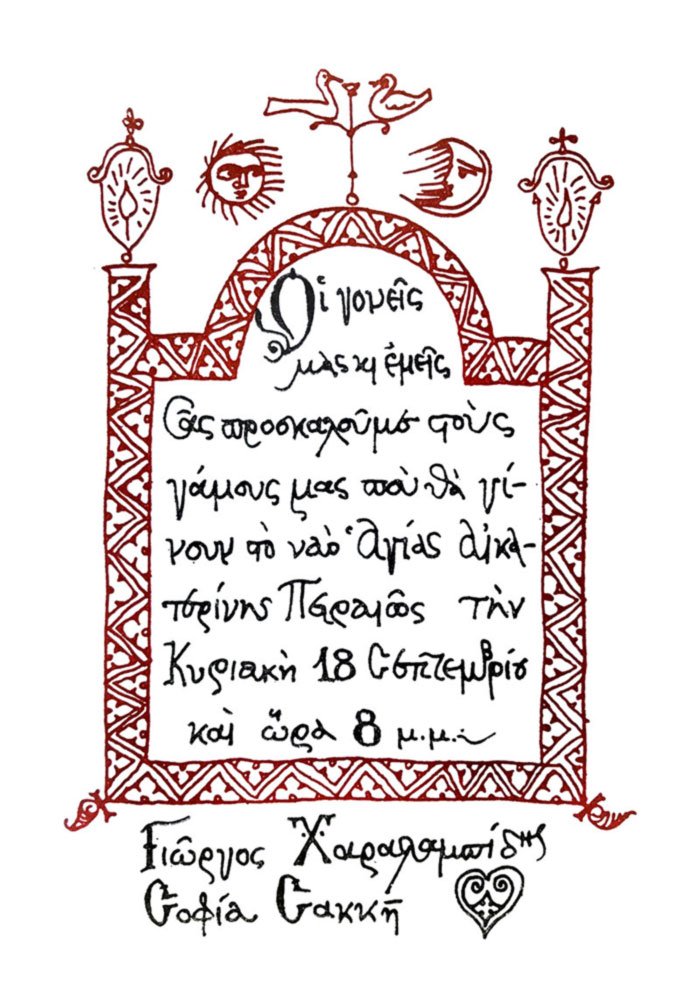 Οἱ γονεῖς
μας κι ἐμεῖς
Σᾶς προσκαλοῦμε στοὺς
γάμους μας ποὺ θὰ γί-
νουν στὸ ναὸ Ἁγίας Αἰκα-
τερίνης Πειραιῶς τὴν
Κυριακὴ 18 Σεπτεμβρίου
καὶ ὥρα 8 μ.μ.
Γιῶργος Χαραλαμπίδης
Σοφία Σακκῆ